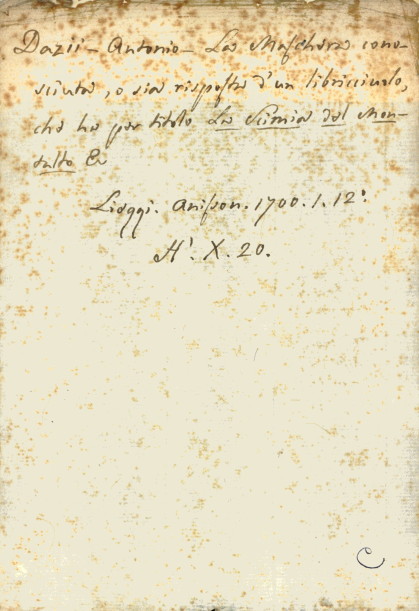 Dazii - Antonio - La Maschera cono-
sciuta, o sia risposta d'un libricciuolo,
che ha per titolo La Scimia del Mon-
talto &c
Lieggi. Anisson. 1700. 1. 12°.
H'. X. 20.
C